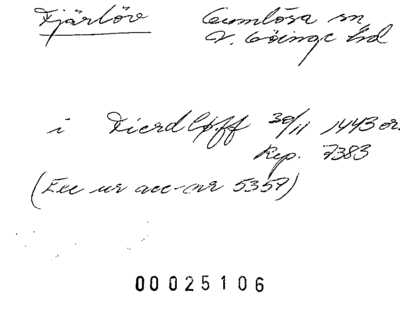 Fjärlöv Gumlösa sn
V. Göinge hd
i Fierdløff 30/11 1443 or.
Rep. 7383
(Exc ur acc-nr 5359)
00025106